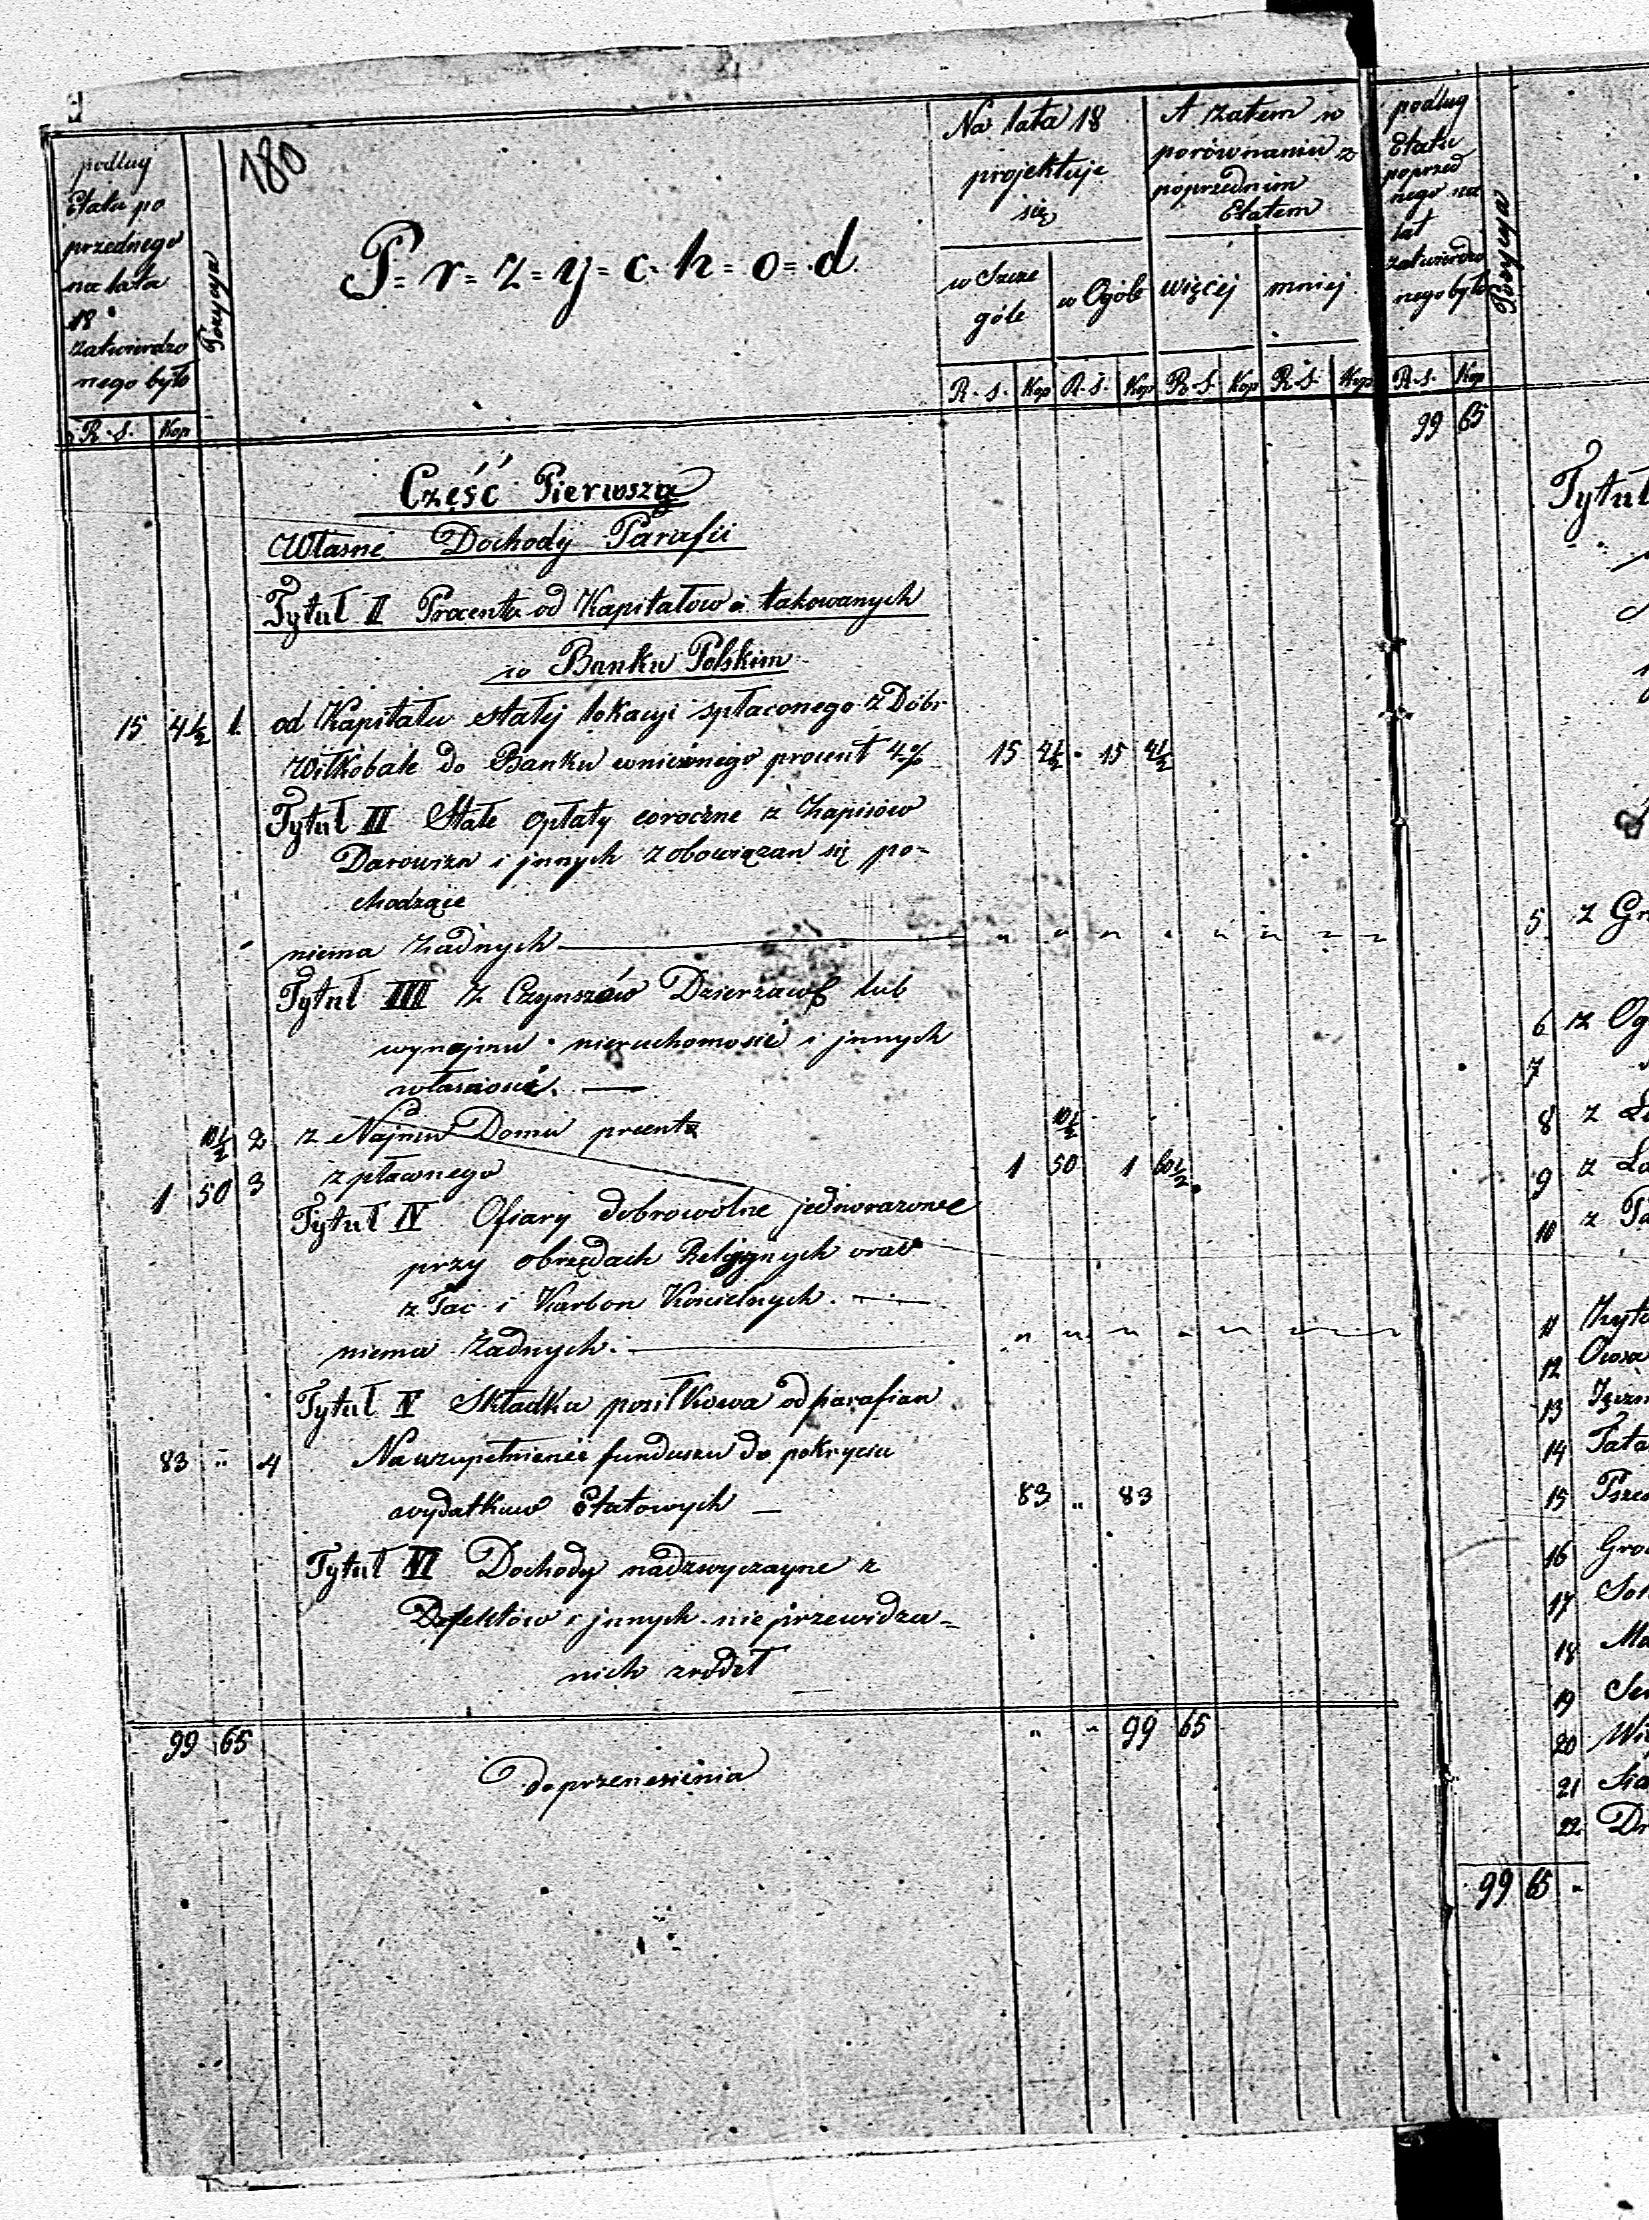 180
podług
Etatu po
przednego
na lata
18
zatwierdzo
nego było
R. S. Kop
Pozycya
P=r=z=y=c=h=o=d.
Na lata 18
projektuje
się
w Szcze
góle
w Ogóle
R. S. Kop R. S. Kop
A zatem w
porównaniu z
poprzednim
Etatem
więcej mniej
R. S. Kop R. S. Kop
Część Pierwsza
Własne Dochody Parafii
Tytuł II Procenta od Kapitałow lokowanych
w Banku Polskim
15 4½ 1. od Kapitału stałej lokacyi spłaconego z Dóbr
Witkobale do Banku wniesionego procent 4% 15 4½ 15 4½
Tytuł III Stałe opłaty coroczne z Zapisów
Darowizn i jnnych zobowiązan się po-
chodzące
niema żadnych — " " " " " " " "
Tytuł IIII z Czynszów Dzierżawy lub
wynajmu nieruchomości i jnnych
własności. —
10½ 2 z Najmu Domu procenta 10½
1 50 3 z pławnego 1 50 1 60½
Tytuł IV Ofiary dobrowolne jednorazowe
przy obrzędach Religijnych oraz
z Tac i Karbon Kościelnych. —
niema żadnych. — " " " " " " "
Tytuł V Składka posiłkowa od parafian
83 " 4 Na uzupełnienie funduszu do pokrycia
wydatkow Etatowych — 83 " 83
Tytuł VI Dochody nadzwyczayne z
Defektów i jnnych nie przewidza-
nich zrodeł
99 65 " " 99 65
do przeniesienia
podług
Etatu
poprzed
nego na
lat
zatwierdzo
nego było
R. S. Kop
Pozycya
99 65
Tytuł
5 z Gr
6 z Og
7
8 z
9 z
10 z
11 Żyto
12 Owsa
13 Jęczm
14 Tata
15 Psze
16 Groc
17
18
19
20
21
22
99 65